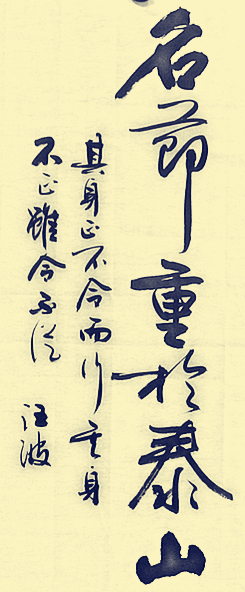 名節重於泰山
其身正不令而行其身
不正雖令不從
汪波